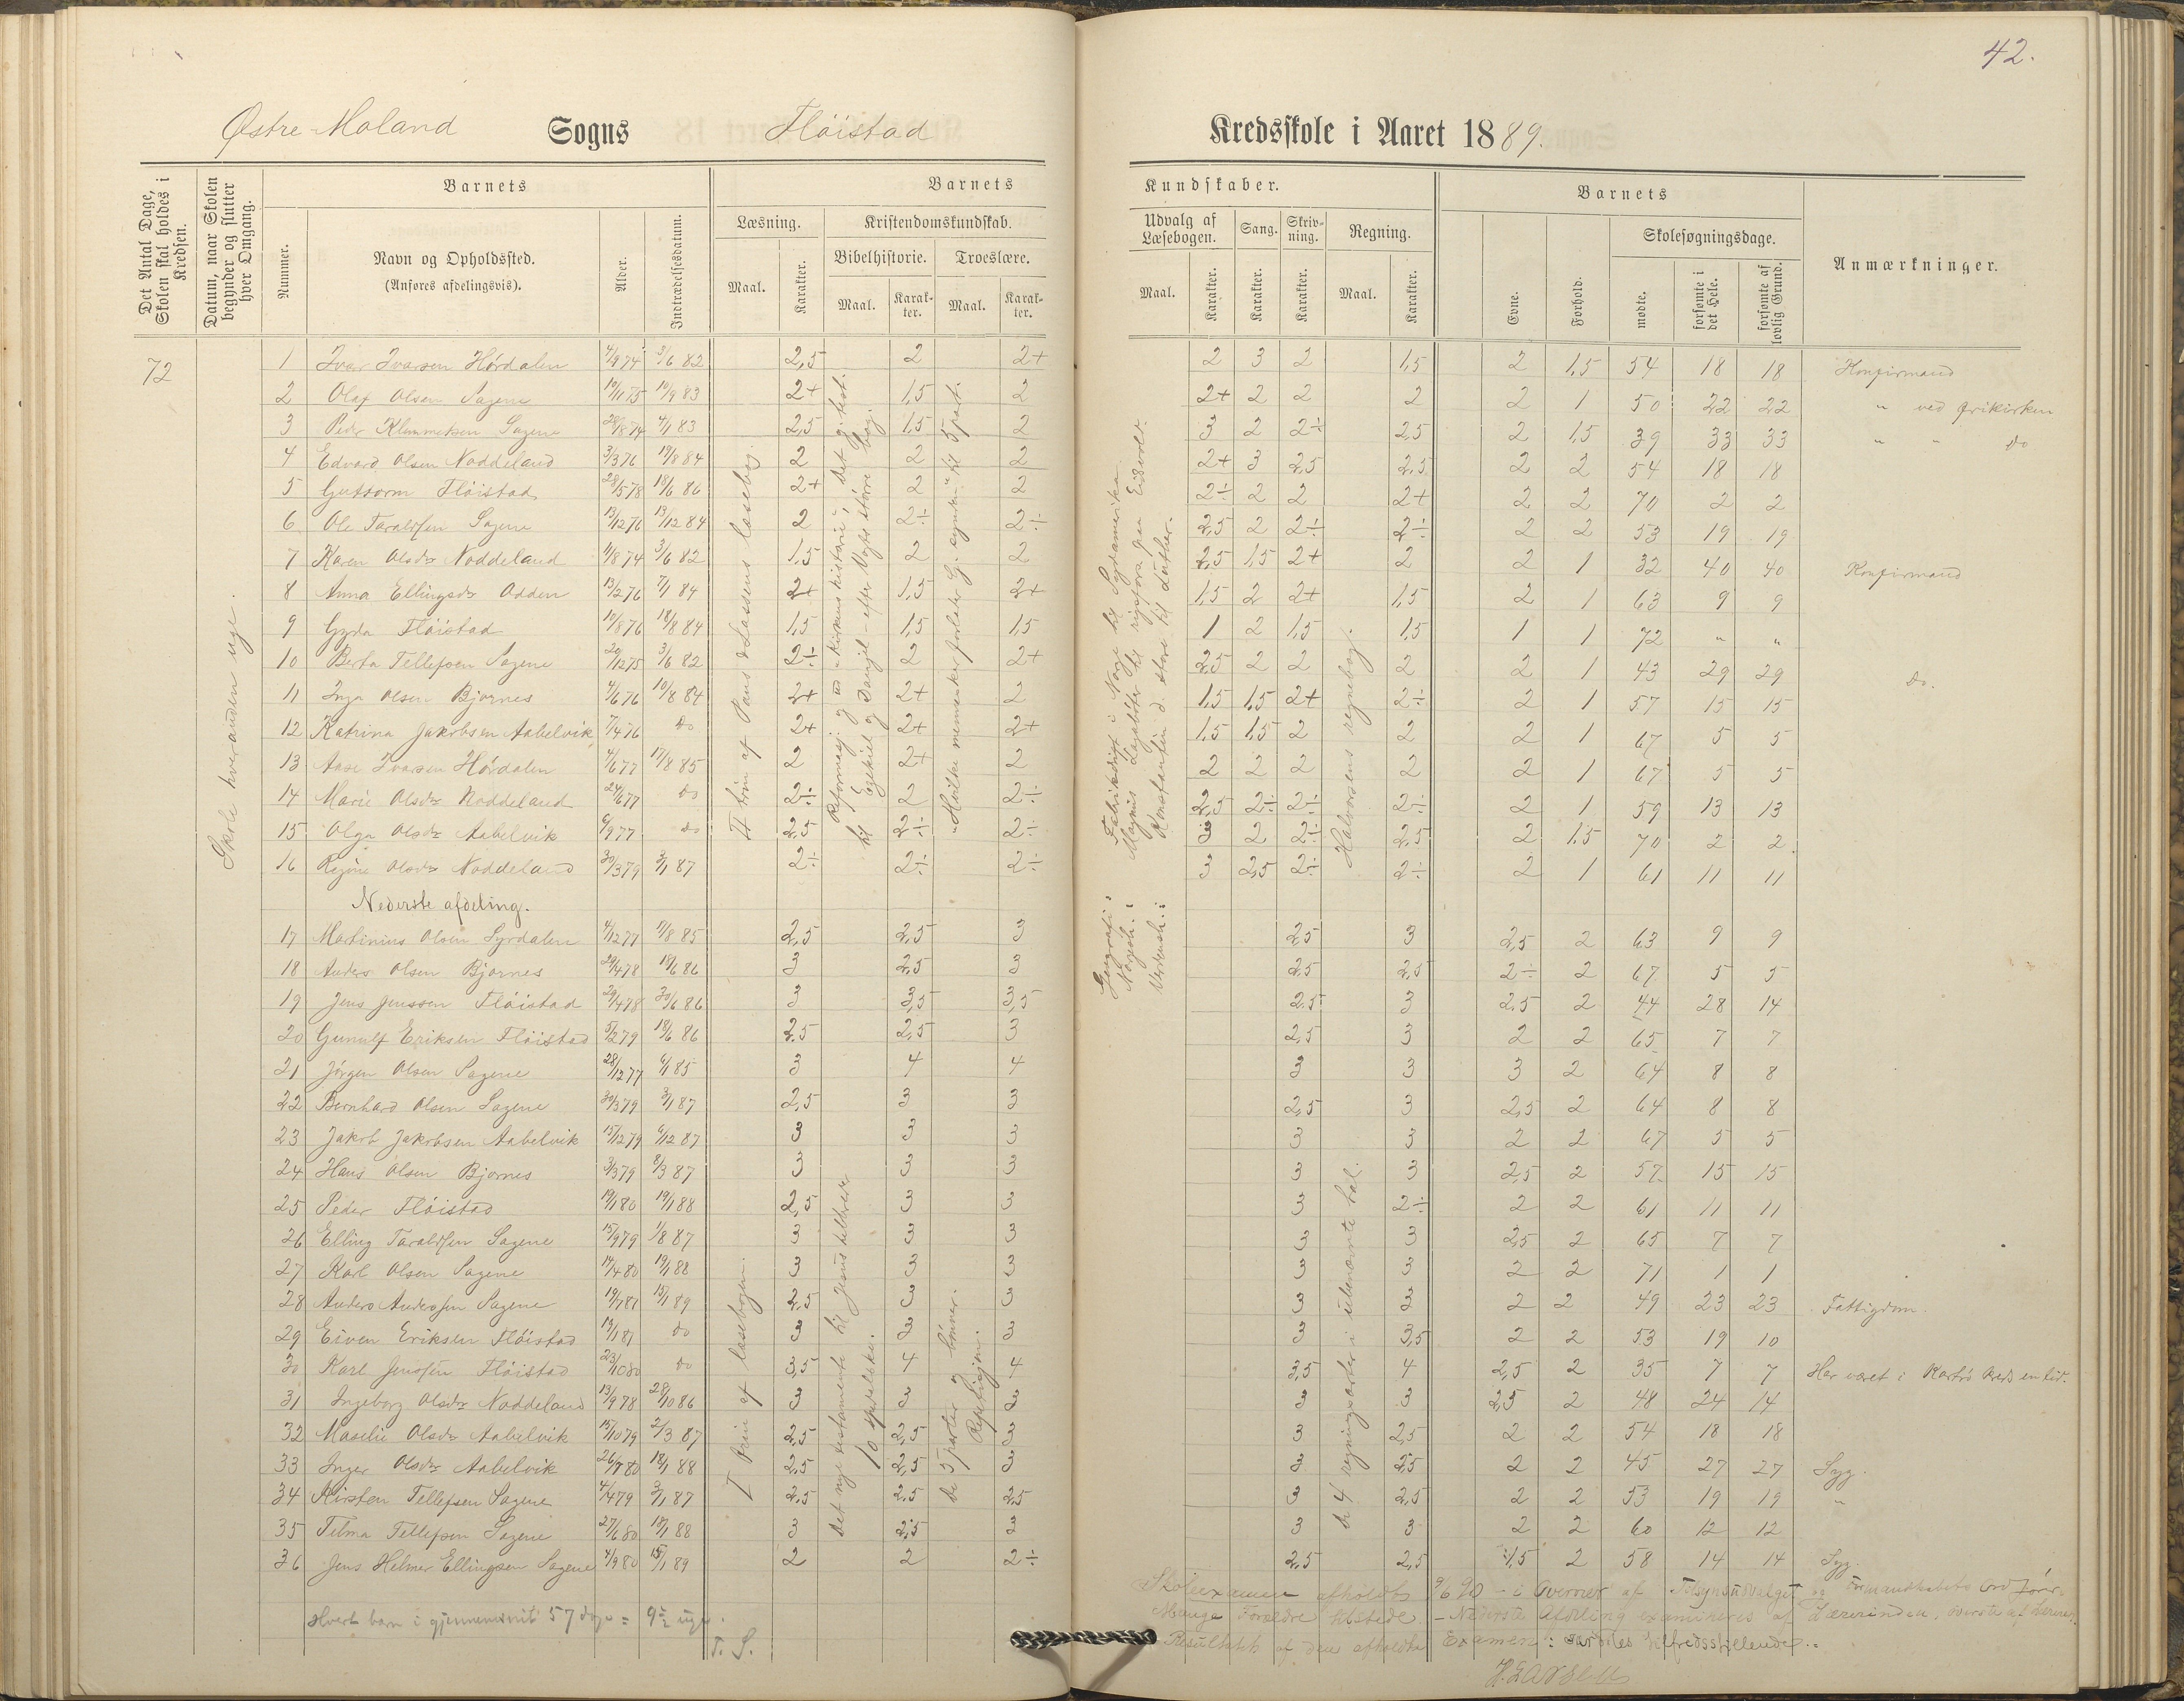 42.
Østre Moland Sogns Flöistad Kredsskole i Aaret 1889.
Det Antal Dage, Skolen skal holdes i Kredsen.
Datum, naar Skolen begynder og slutter hver Omgang.
Barnets
Nummer.
Navn og Opholdssted.
(Anføres afdelingsvis).
Alder.
Indtrædelsesdatum.
Barnets Kundskaber.
Læsning.
Maal.
Karakter.
Kristendomskundskab.
Bibelhistorie.
Maal.
Karakter.
Troeslære.
Maal.
Karakter.
Udvalg af Læsebogen.
Maal.
Karakter.
Sang.
Karakter.
Skrivning.
Karakter.
Regning.
Maal.
Karakter.
Barnets
Evne.
Forhold.
Skolesøgningsdage.
mødte.
forsømte i det Hele.
forsømte af lovlig Grund.
Anmærkninger.
72
Skole hveranden uge.
1 Ivar Ivarsen Hördalen 4/9 74 3/6 82 2,5 2 2+ 2 3 2 1,5 2 1,5 54 18 18 Konfirmand
2 Olaf Olsen Sagene 10/11 75 10/9 83 2+ 1,5 2 2+ 2 2 2 2 1 50 22 22 " ved frikirken
3 Peder Klemmetsen Sagene 28/8 74 4/1 83 2,5 1,5 2 3 2 2÷ 2,5 2 1,5 39 33 33 " " do
4 Edvard Olsen Noddeland 3/3 76 19/8 84 2 2 2 2+ 3 2,5 2,5 2 2 54 18 18
5 Guttorm Flöistad 28/5 78 18/6 86 2+ 2 2 2÷ 2 2 2+ 2 2 70 2 2
6 Ole Taraldsen Sagene 13/12 76 13/12 84 2 2÷ 2÷ 2,5 2 2÷ 2÷ 2 2 53 19 19
7 Karen Olsdr Noddeland 11/8 74 3/6 82 1,5 2 2 2,5 1,5 2+ 2 2 1 32 40 40 Konfirmand
8 Anna Ellingsdr Odden 13/2 76 7/1 84 2+ 1,5 2+ 1,5 2 2+ 1,5 2 1 63 9 9
9 Gyda Flöistad 10/8 76 18/8 84 1,5 1,5 1,5 1 2 1,5 1,5 1 1 72 " "
10 Berta Tellefsen Sagene 20/12 75 3/6 82 2÷ 2 2+ 2,5 2 2 2 2 1 43 29 29 do.
11 Inga Olsen Bjornes 4/6 76 10/8 84 2+ 2+ 2 1,5 1,5 2+ 2÷ 2 1 57 15 15
12 Katrina Jakobsen Aabelvik 7/4 76 do 2+ 2+ 2+ 1,5 1,5 2 2 2 1 67 5 5
13 Aase Ivarsen Hördalen 4/6 77 17/8 85 2 2+ 2 2 2 2 2 2 1 67 5 5
14 Marie Olsdr Noddeland 24/6 77 do 2÷ 2 2÷ 2,5 2÷ 2÷ 2÷ 2 1 59 13 13
15 Olga Olsdr Aabelvik 6/9 77 do 2,5 2÷ 2÷ 3 2 2÷ 2,5 2 1,5 70 2 2
16 Regine Olsdr Noddeland 30/3 79 3/1 87 2÷ 2÷ 2÷ 3 2,5 2÷ 2÷ 2 1 61 11 11
II trin af Pauss & Lassens læsebog.
Reformasj. og ud "Kirkens historie"; Det g. test.
til Ezekiel og Daniel – efter Vogts större bog.
"Hvilke mennesker forlader G. synden" til 5 part.
Geografi: Fabrikdrift i Norge til Sydamerika
Norgesh.: Magnus Lagaböter til rigsfors. paa Eidsvold.
Verdensh.: Konstantin d. store til Luther.
Halvorsens regnebog.
Nederste afdeling.
17 Martinius Olsen Syrdalen 4/12 77 17/8 85 2,5 2,5 3 2,5 3 2,5 2 63 9 9
18 Anders Olsen Bjornes 29/4 78 18/6 86 3 2,5 3 2,5 2,5 2÷ 2 67 5 5
19 Jens Jenssen Flöistad 29/4 78 30/6 86 3 3,5 3,5 2,5 3 2,5 2 44 28 14
20 Gunulf Eriksen Flöistad 5/2 79 18/6 86 2,5 2,5 3 2,5 3 2 2 65 7 7
21 Jörgen Olsen Sagene 28/12 77 6/1 85 3 4 4 3 3 3 2 64 8 8
22 Bernhard Olsen Sagene 30/3 79 3/1 87 2,5 3 3 2,5 3 2,5 2 64 8 8
23 Jakob Jakobsen Aabelvik 15/12 79 6/12 87 3 3 3 3 3 2 2 67 5 5
24 Hans Olsen Bjornes 3/3 79 8/3 87 3 3 3 3 3 2,5 2 57 15 15
25 Peder Flöistad 19/1 80 19/1 88 2,5 3 3 3 2÷ 2 2 61 11 11
26 Elling Taraldsen Sagene 15/9 79 1/8 87 3 3 3 3 3 2,5 2 65 7 7
27 Karl Olsen Sagene 14/4 80 19/1 88 3 3 3 3 3 2 2 71 1 1
28 Anders Andersen Sagene 19/1 81 15/1 89 2,5 3 3 3 3 2 2 49 23 23 Fattigdom.
29 Eiven Eriksen Flöistad 13/1 81 do 3 3 3 3 3,5 2 2 53 19 10
30 Karl Jenssen Flöistad 23/10 80 do 3,5 4 4 3,5 4 2,5 2 35 7 7 Har været i kreds en tid.
31 Ingeborg Olsdr Noddeland 13/9 78 28/10 86 3 3 3 3 3 2,5 2 48 24 14
32 Maselie Olsdr Aabelvik 15/10 79 2/3 87 2,5 2,5 3 3 2,5 2 2 54 18 18
33 Inger Olsdr Aabelvik 26/7 80 18/1 88 2,5 2,5 3 3 2,5 2 2 45 27 27 Syg.
34 Kirsten Tellefsen Sagene 4/4 79 3/1 87 2,5 2,5 2,5 3 2,5 2 2 53 19 19 "
35 Tilma Tellefsen Sagene 27/6 80 18/1 88 3 2,5 3 3 3 2 2 60 12 12
36 Jens Helmer Ellingsen Sagene 4/9 80 15/1 89 2 2 2÷ 2,5 2,5 1,5 2 58 14 14 Syg.
I trin af læsebogen.
Det nye testamente til Jesus helbreder
10 spedalske.
De 5 parter og bönner.
Repetisjon.
De 4 regningsarter i ubenævnte tal.
Hvert barn i gjennemsnit 57 dage = 9½ uge.
T. S.
Skoleexamen afholdts 9/6 90 – i Overvær af Tilsynsudvalget og Formandskabets Ordförer.
Mange Forældre tilstede. – Nederste Afdeling examineres af Lærerinden, överste af Læreren.
Resultatet af den afholdte Examen: særdeles tilfredsstillende.
H. Larsen